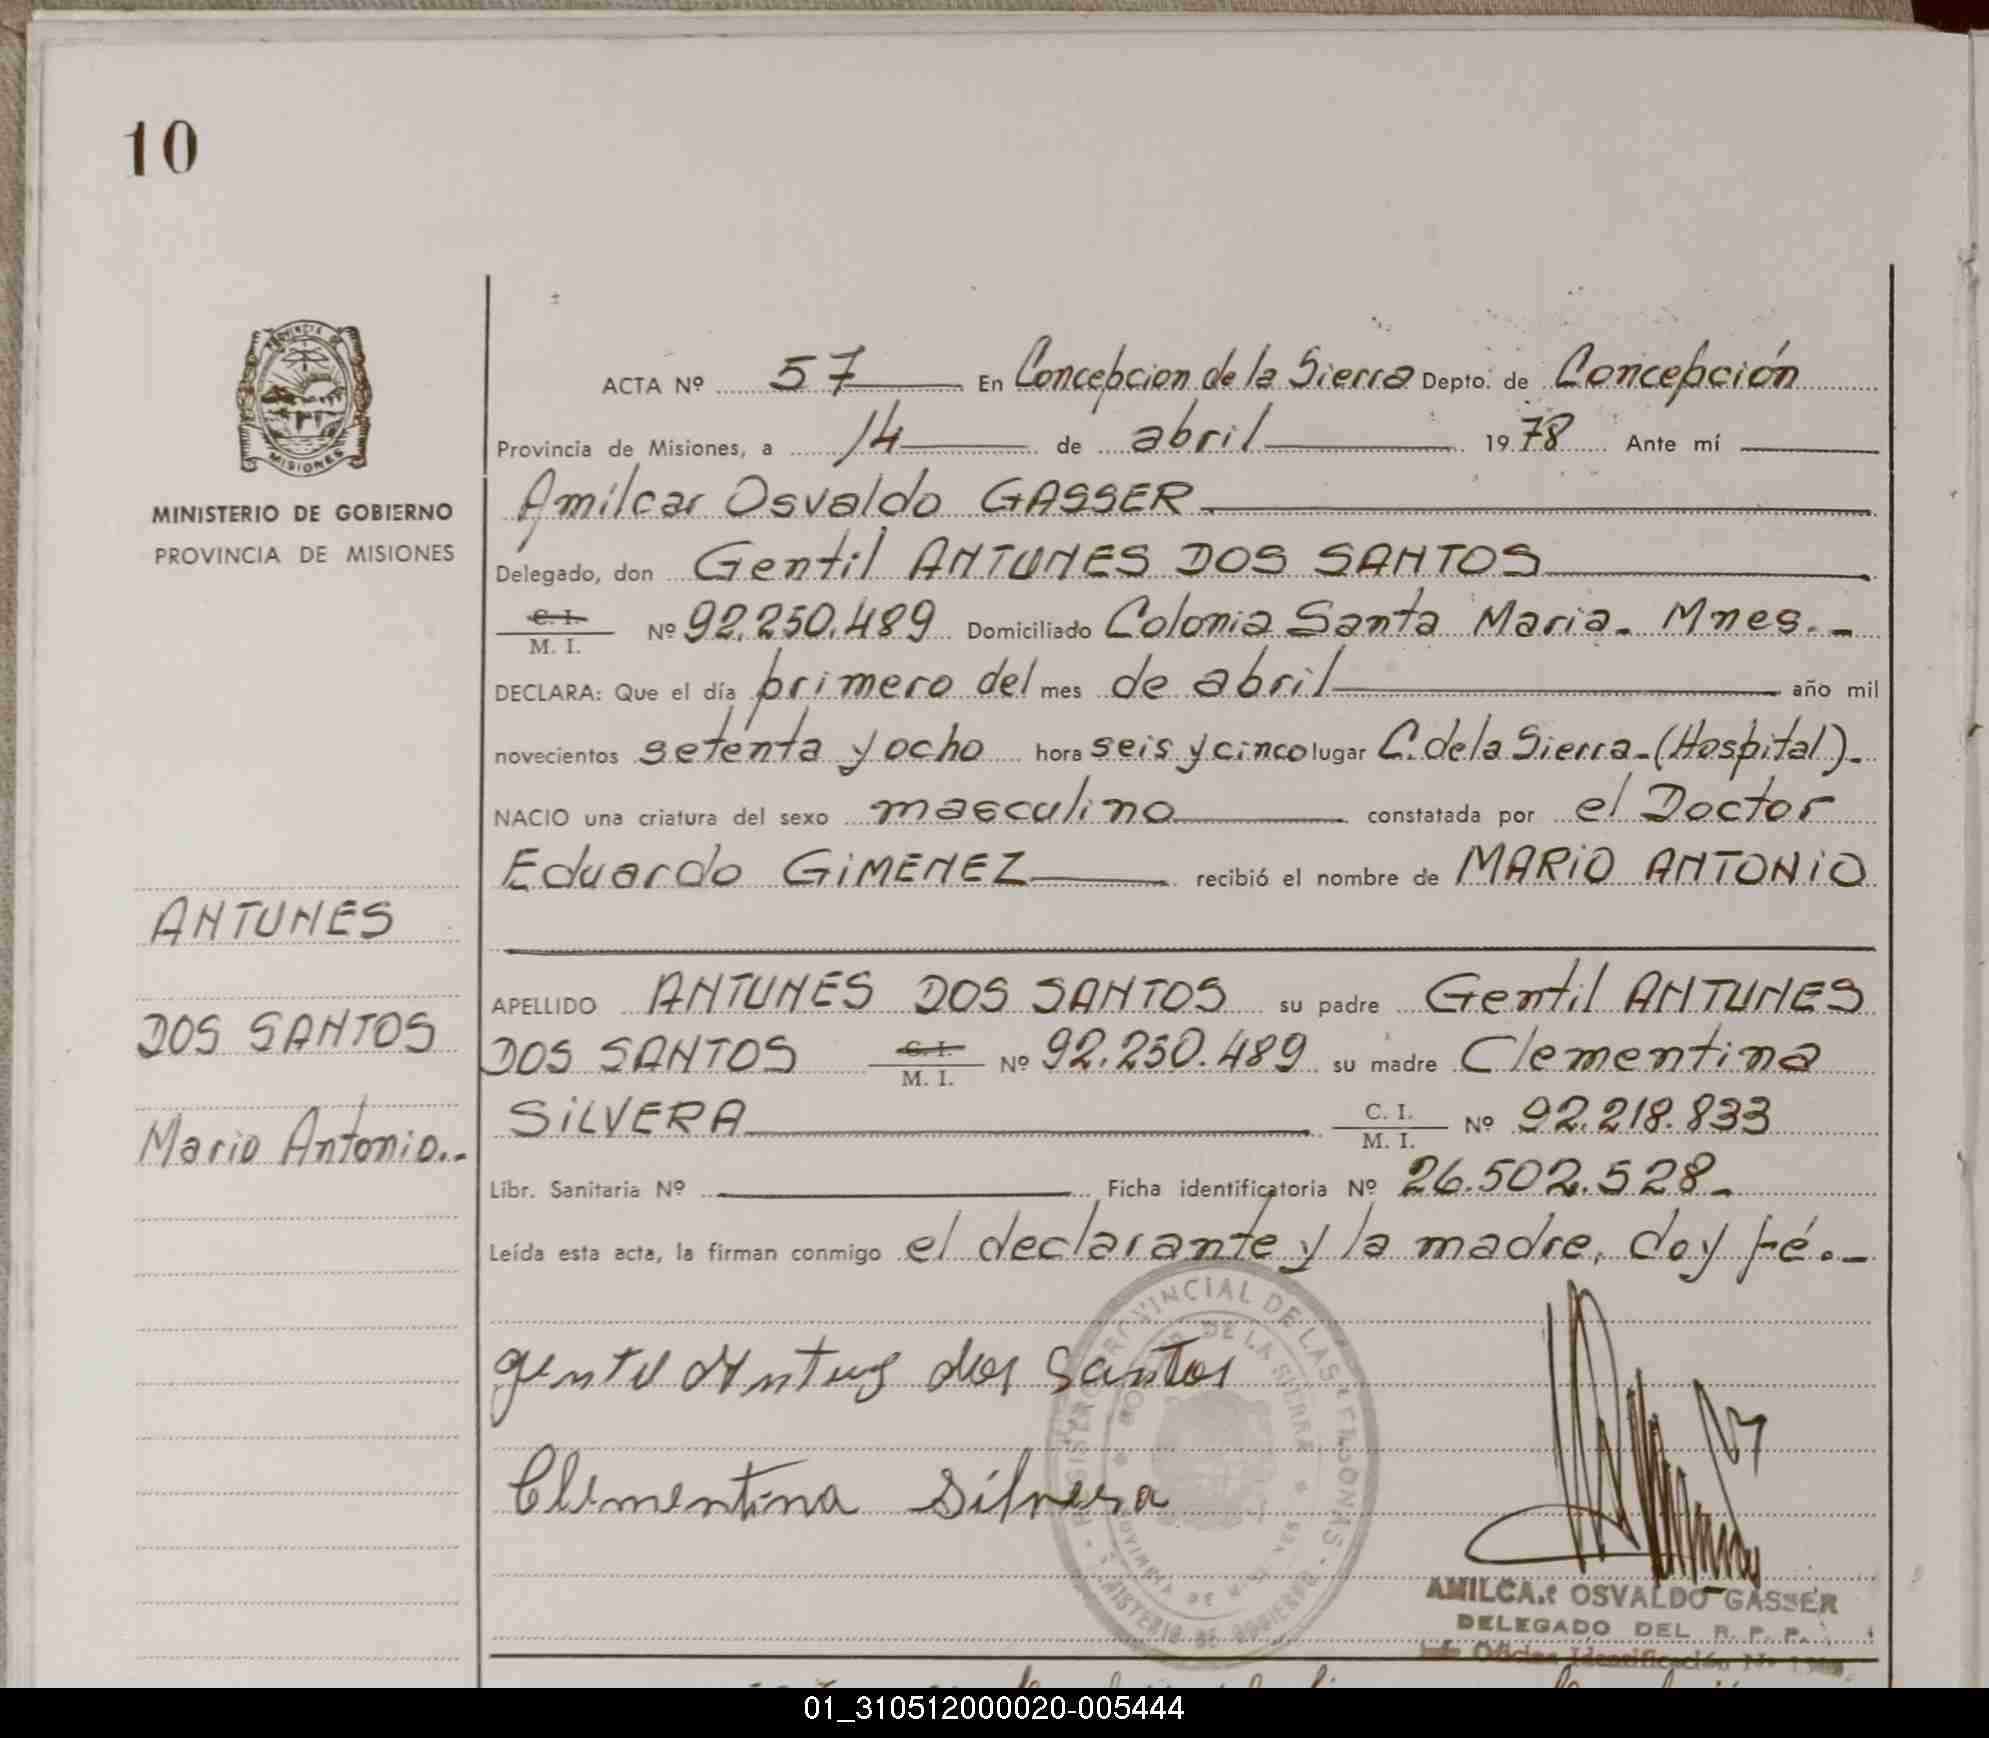 10
PROVINCIA
MISIONES
MINISTERIO DE GOBIERNO
PROVINCIA DE MISIONES
ANTUNES
DOS SANTOS
Mario Antonio..-
ACTA Nº 57 En Concepcion de la Sierra Depto. de Concepción
Provincia de Misiones, a 14 de abril 1978 Ante mí
Amilcar Osvaldo GASSER
Delegado, don Gentil ANTUNES DOS SANTOS
C. I.
M. I. Nº 92.250.489 Domiciliado Colonia Santa Maria. Mnes.-
DECLARA: Que el día primero del mes de abril año mil
novecientos setenta y ocho hora seis y cinco lugar C. de la Sierra-(Hospital).-
NACIO una criatura del sexo masculino constatada por el Doctor
Eduardo GIMENEZ recibió el nombre de MARIO ANTONIO
APELLIDO ANTUNES DOS SANTOS su padre Gentil ANTUNES
DOS SANTOS C. I. M. I. Nº 92.250.489 su madre Clementina
SILVERA C. I. M. I. Nº 92.218.833
Libr. Sanitaria Nº Ficha identificatoria Nº 26.502.528-
Leída esta acta, la firman conmigo el declarante y la madre, doy fé.-
REGISTRO PROVINCIAL DE LAS PERSONAS
MINISTERIO DE GOBIERNO
DE LA SIERRA
PROVINCIA DE MISIONES
Gentil Antues dos Santos
Clementina Silvera
AMILCAR OSVALDO GASSER
DELEGADO DEL R. P. P.
Jefe Oficina Identificación Nº
01_310512000020-005444